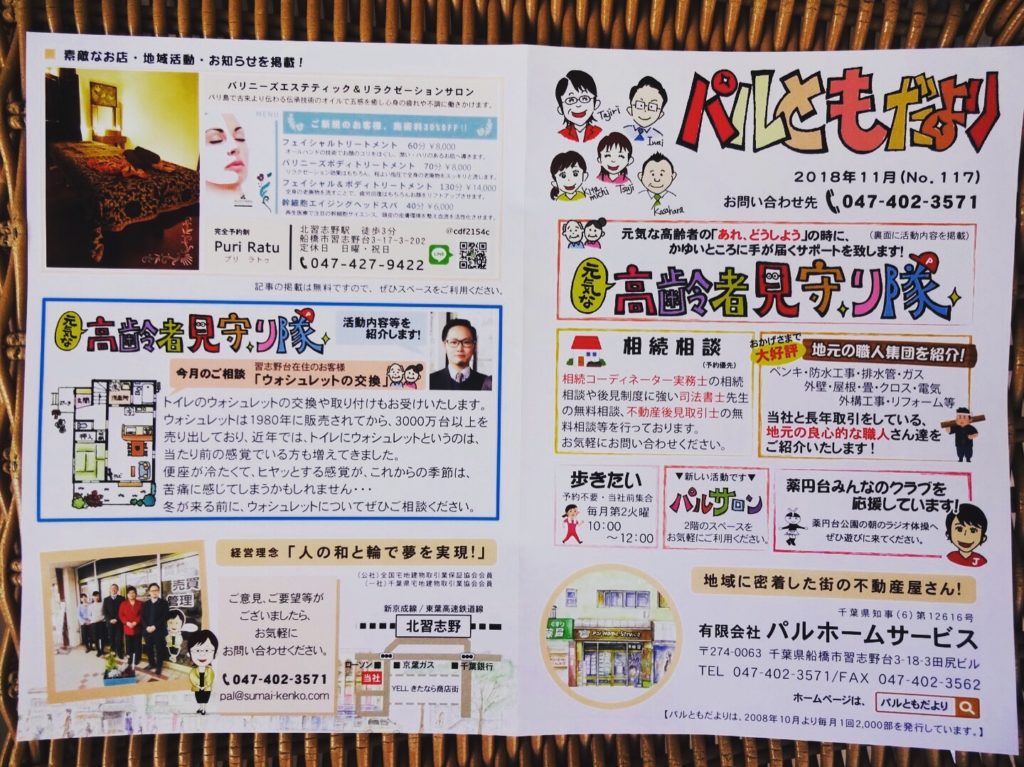 素敵なお店・地域活動・お知らせを掲載！
バリニーズエステティック＆リラクゼーションサロン
バリ島で古来より伝わる伝承技術のオイルで五感を癒し心身の疲れや不調に働きかけます。
MENU
ご新規のお客様、施術料30%OFF!!
フェイシャルトリートメント 60分 ¥8,000
オールハンドの技術でお顔のコリをほぐし、潤い・ハリのあるお肌へ導きます。
バリニーズボディトリートメント 70分 ¥8,000
フェイシャル＆ボディトリートメント 130分 ¥14,000
幹細胞エイジングヘッドスパ 40分 ¥6,000
完全予約制
Puri Ratu
プリ ラトゥ
北習志野駅 徒歩3分
船橋市習志野台3-17-3-202
定休日 日曜・祝日
047-427-9422
@cdf2154c
LINE
記事の掲載は無料ですので、ぜひスペースをご利用ください。
元気な 高齢者見守り隊
活動内容等を
紹介します！
今月のご相談
習志野台在住のお客様
「ウォシュレットの交換」
トイレのウォシュレットの交換や取り付けもお受けいたします。
ウォシュレットは1980年に販売されてから、3000万台以上を
売り出しており、近年では、トイレにウォシュレットというのは、
当たり前の感覚でいる方も増えてきました。
便座が冷たくて、ヒヤッとする感覚が、これからの季節は、
苦痛に感じてしまうかもしれません・・・
冬が来る前に、ウォシュレットについてぜひご相談ください。
押入
経営理念 「人の和と輪で夢を実現！」
（公社）全国宅地建物取引業保証協会会員
（一社）千葉県宅地建物取引業協会会員
売買
管理
ご意見、ご要望等が
ございましたら、
お気軽に
お問い合わせください。
047-402-3571
pal@sumai-kenko.com
新京成線／東葉高速鉄道線
北習志野
ローソン
京葉ガス
千葉銀行
当社
YELL きたなら商店街
Tajiri
Inoi
Kimi michi
Tsuji
Kasahara
パルともだより
2018年11月(No. 117)
お問い合わせ先 047-402-3571
元気な高齢者の「あれ、どうしよう」の時に、
（裏面に活動内容を掲載）
かゆいところに手が届くサポートを致します！
元気な 高齢者見守り隊
P
相続相談
（予約優先）
相続コーディネーター実務士の相続
相談や後見制度に強い司法書士先生
の無料相談、不動産後見取引士の無
料相談等を行っております。
お気軽にお問い合わせください。
おかげさまで
大好評
地元の職人集団を紹介！
ペンキ・防水工事・排水管・ガス
外壁・屋根・畳・クロス・電気
外構工事・リフォーム等
当社と長年取引をしている、
地元の良心的な職人さん達を
ご紹介いたします！
歩きたい
予約不要・当社前集合
毎月第2火曜
10:00
～12:00
▼新しい活動です▼
パルサロン
2階のスペースを
お気軽にご利用ください。
薬円台みんなのクラブを
応援しています！
薬円台公園の朝のラジオ体操へ
ぜひ遊びに来てください。
J
地域に密着した街の不動産屋さん！
PAL HOME SERVICE
千葉県知事(6)第12616号
有限会社 パルホームサービス
〒274-0063 千葉県船橋市習志野台3-18-3田尻ビル
TEL 047-402-3571/FAX 047-402-3562
ホームページは、 パルともだより
【パルともだよりは、2008年10月より毎月1回2,000部を発行しています。】